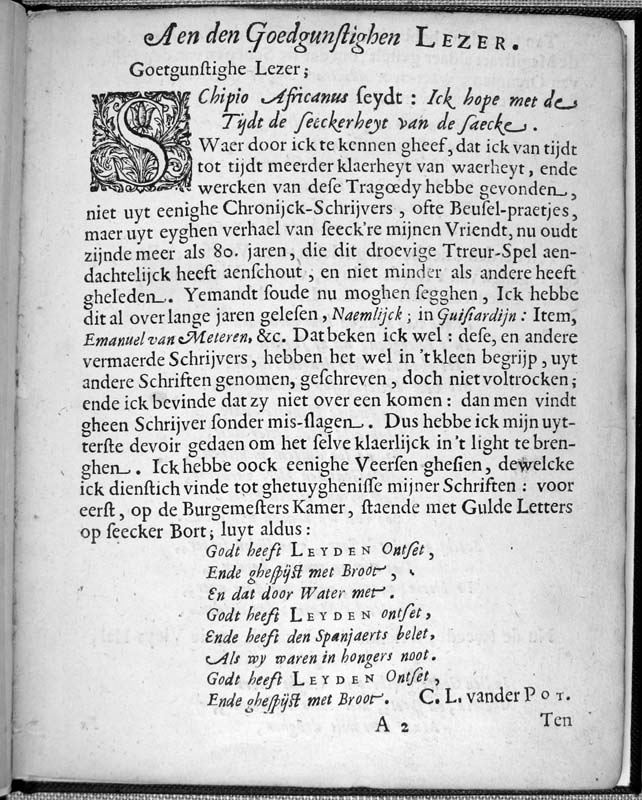 Aen den Goedgunſtighen LEZER.
Goetgunſtighe Lezer;
SChipio Africanus ſeydt : Ick hope met de
Tijdt de ſeeckerheyt van de ſaecke.
Waer door ick te kennen gheef, dat ick van tijdt
tot tijdt meerder klaerheyt van waerheyt, ende
wercken van deſe Tragœdy hebbe gevonden,
niet uyt eenighe Chronijck-Schrijvers, ofte Beuſel-praetjes,
maer uyt eyghen verhael van ſeeck're mijnen Vriendt, nu oudt
zijnde meer als 80. jaren, die dit droevige Ttreur-Spel aen-
dachtelijck heeft aenſchout, en niet minder als andere heeft
gheleden. Yemandt ſoude nu moghen ſegghen, Ick hebbe
dit al over lange jaren geleſen, Naemlijck; in Guiſiardijn: Item,
Emanuel van Meteren, &c. Dat beken ick wel: deſe, en andere
vermaerde Schrijvers, hebben het wel in 't kleen begrijp, uyt
andere Schriften genomen, geſchreven, doch niet voltrocken;
ende ick bevinde dat zy niet over een komen: dan men vindt
gheen Schrijver ſonder mis-ſlagen. Dus hebbe ick mijn uyt-
terſte devoir gedaen om het ſelve klaerlijck in't light te bren-
ghen. Ick hebbe oock eenighe Veerſen gheſien, dewelcke
ick dienſtich vinde tot ghetuygheniſſe mijner Schriften: voor
eerſt, op de Burgemeſters Kamer, ſtaende met Gulde Letters
op ſeecker Bort; luyt aldus:
Godt heeft LEYDEN Ontſet,
Ende gheſpijſt met Broot,
En dat door Water met.
Godt heeft LEYDEN ontſet,
Ende heeft den Spanjaerts belet,
Als wy waren in hongers noot.
Godt heeft LEYDEN Ontſet,
Ende gheſpijſt met Broot. C. L. vander POT.
A 2 Ten